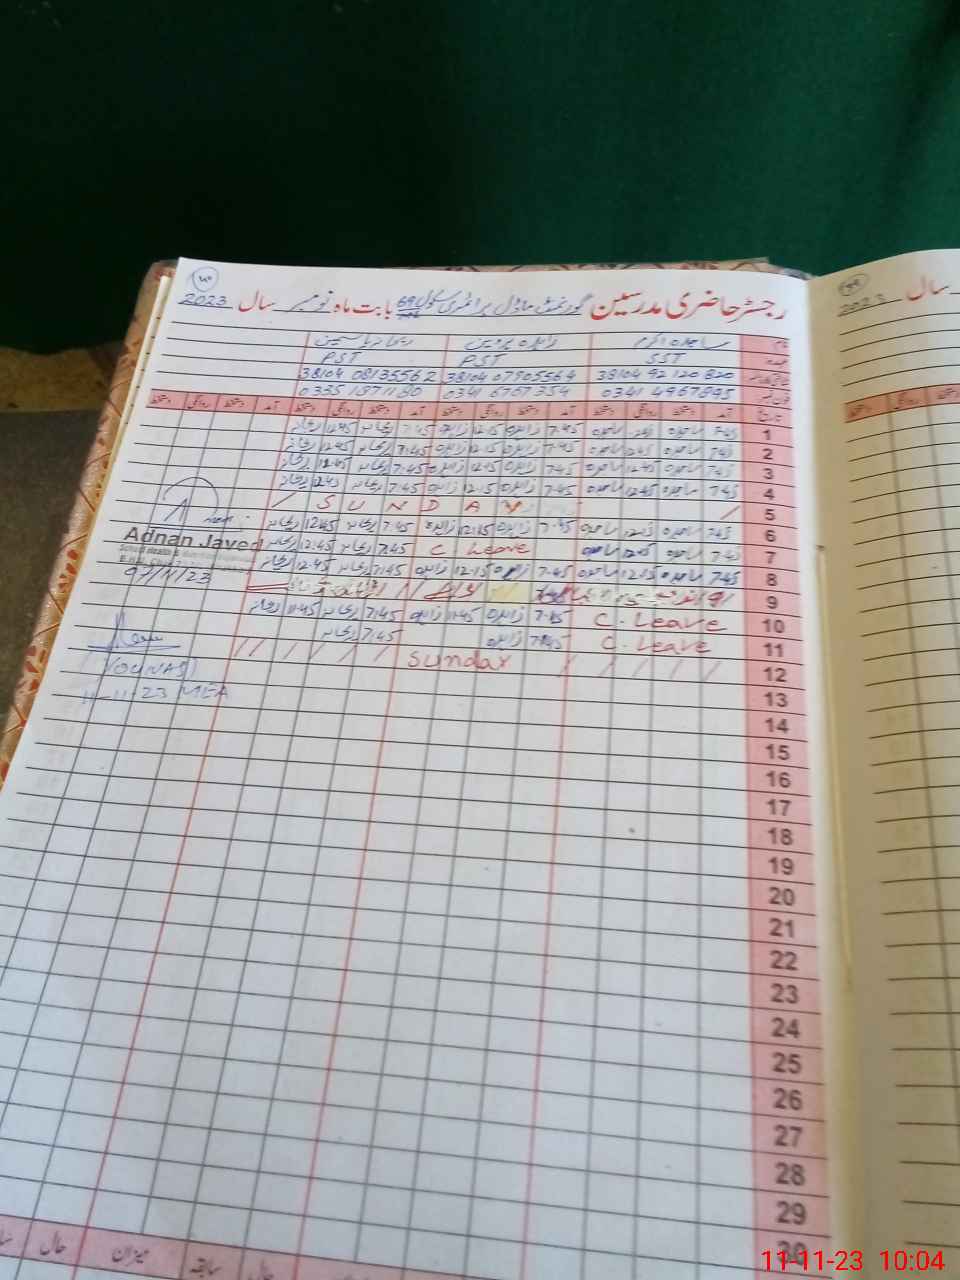 رجسٹر حاضری مدرسین گورنمنٹ ماڈل پرائمری سکول 69 بابت ماہ نومبر سال 2023
نام ساجدہ اکرم زاہدہ پروین ریحانہ یاسمین
عہدہ SST PST PST
38104 92 120 820 38104 07905564 38104 08135562
0341 4967895 0341 6767354 0335 1871180
تاریخ آمد دستخط روانگی دستخط آمد دستخط روانگی دستخط آمد دستخط روانگی دستخط آمد دستخط روانگی دستخط
1 7:45 ساجدہ 12:45 ساجدہ 7:45 زاہدہ 12:15 زاہدہ 7:45 ریحانہ 12:45 ریحانہ
2 7:45 ساجدہ 12:45 ساجدہ 7:45 زاہدہ 12:15 زاہدہ 7:45 ریحانہ 12:45 ریحانہ
3 7:45 ساجدہ 12:45 ساجدہ 7:45 زاہدہ 12:45 زاہدہ 7:45 ریحانہ 12:45 ریحانہ
4 7:45 ساجدہ 12:45 ساجدہ 7:45 زاہدہ 12:15 زاہدہ 7:45 ریحانہ 12:45 ریحانہ
5 / S U N D A Y /
6 7:45 ساجدہ 12:45 ساجدہ 7:45 زاہدہ 12:15 زاہدہ 7:45 ریحانہ 12:45 ریحانہ
7 7:45 ساجدہ 12:45 ساجدہ C Leave 7:45 ریحانہ 12:45 ریحانہ
8 7:45 ساجدہ 12:45 ساجدہ 7:45 زاہدہ 12:15 زاہدہ 7:45 ریحانہ 12:45 ریحانہ
9
10 C. Leave 7:45 زاہدہ 11:45 زاہدہ 7:45 ریحانہ 11:45 ریحانہ
11 C. Leave 7:45 زاہدہ 7:45 ریحانہ
12 / / / / / Sunday / / / / / /
13
14
15
16
17
18
19
20
21
22
23
24
25
26
27
28
29
30
Adnan Javed
School Health &
11-11-23 MEA
میزان حال
سابقہ حال
سال
2023
دستخط روانگی دستخط
11-11-23 10:04